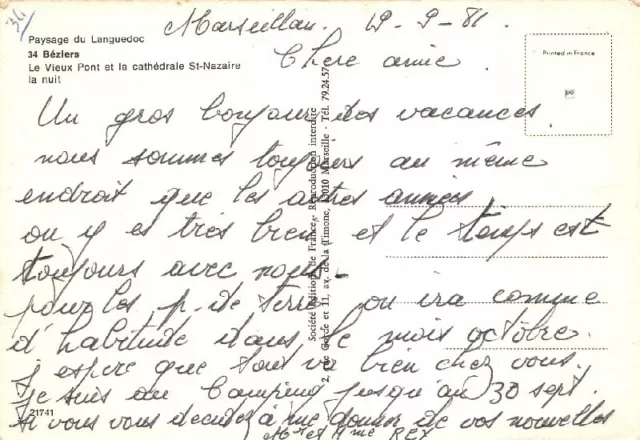 34
Marseillan. 19-9-81.
Paysage du Languedoc
34 Béziers
Le Vieux Pont et la cathédrale St-Nazaire
la nuit
Printed in France
Chere amie.
Un gros bonjour des vacances
nous sommes toujours au même
endroit que les autres années
on y es très bien et le temps est
toujours avec nous.
pour les p. de terre on ira comme
d'habitude dans le mois octobre.
j espere que tout va bien chez vous.
je suis au Camping jusqu'au 30 sept.
si vous vous decidez à me donner de vos nouvelles
Mr et Mme REX
21741
Société Editions de France - Reproduction interdite
2, rue Gonde et 11, av. de la Timone, 13010 Marseille - Tél. 79.24.57